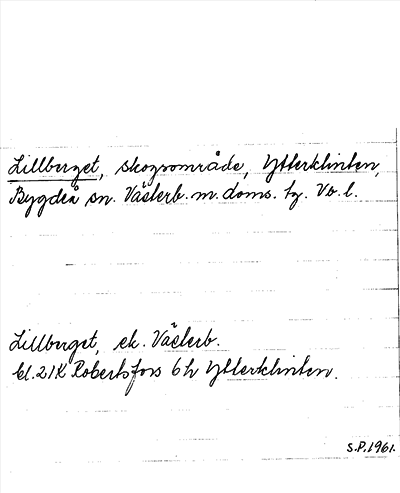 Lillberget, skogsområde, Ytterklinten,
Bygdeå sn. Västerb. m. doms. tg. Vb. l.
Lillberget, ek. Västerb.
bl. 21K Robertsfors 6h Ytterklinten.
S.P. 1961.